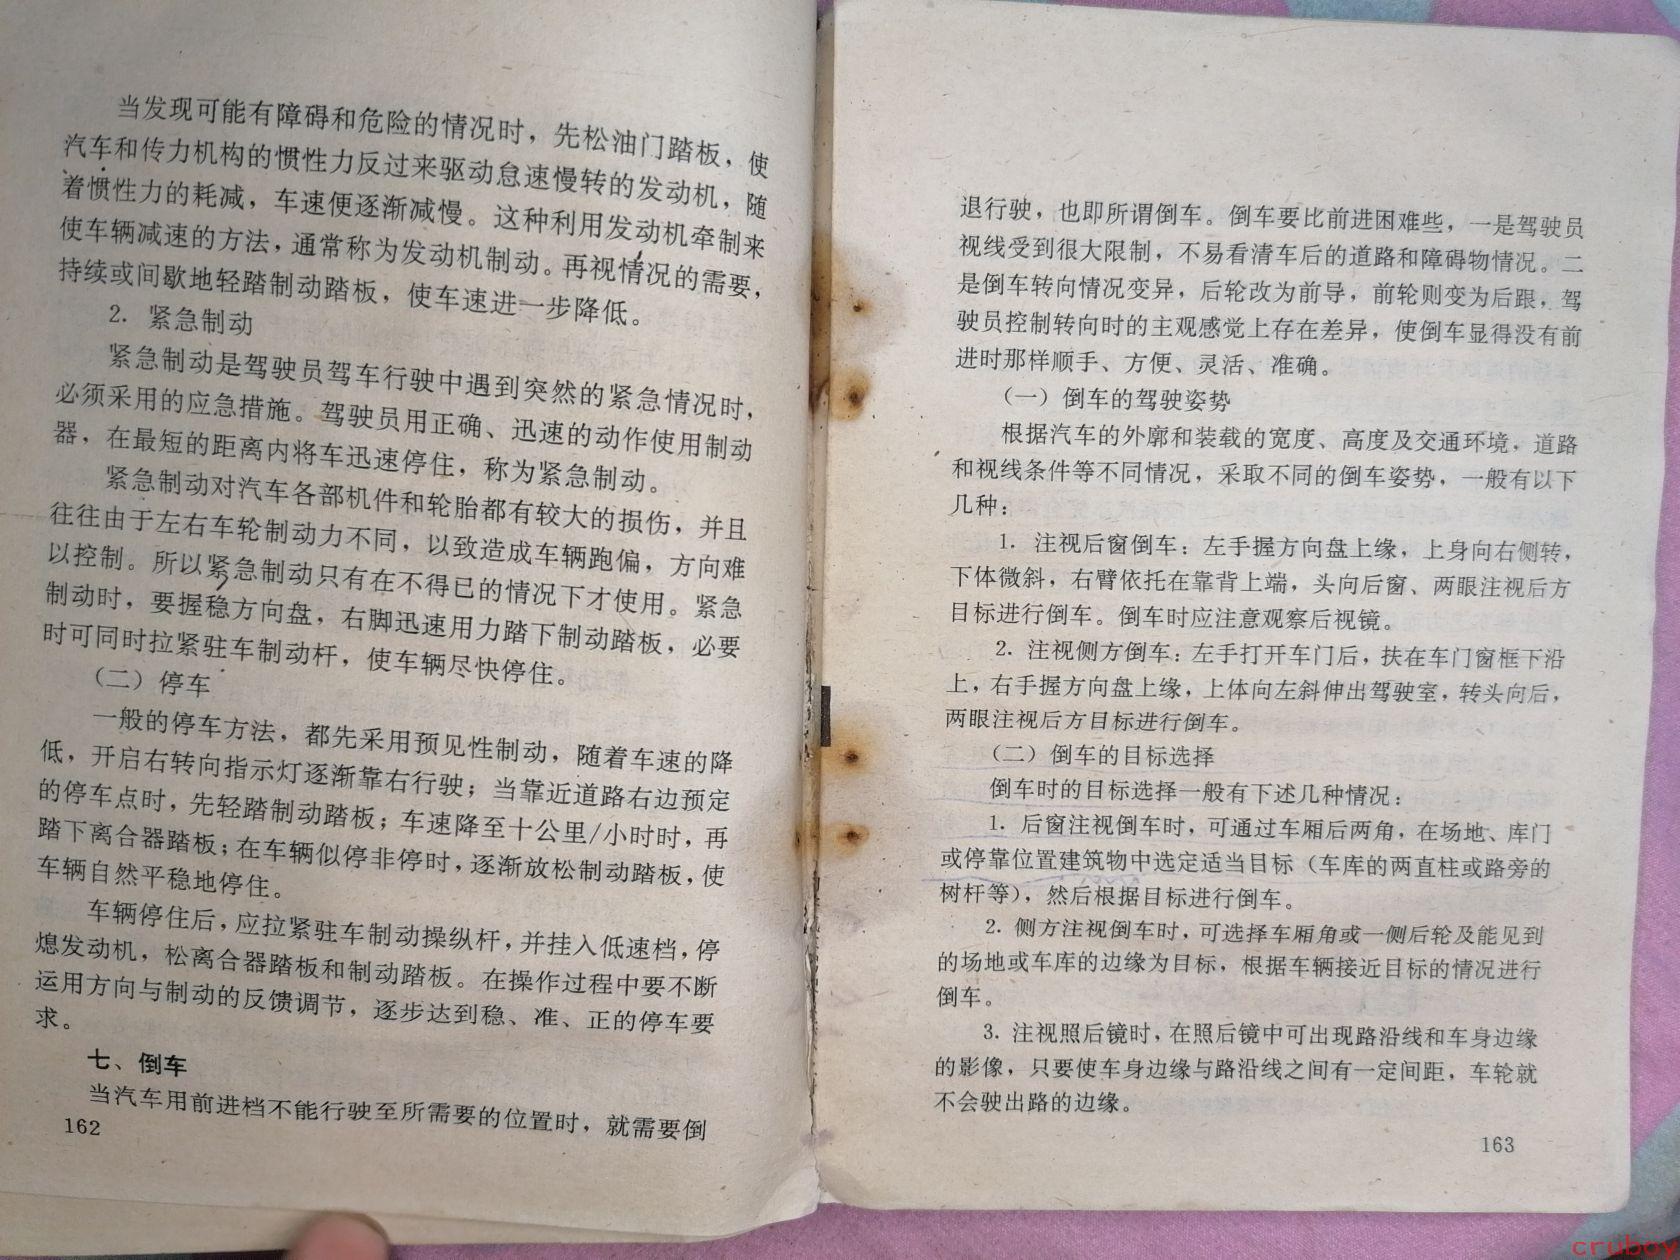 当发现可能有障碍和危险的情况时，先松油门踏板，使
汽车和传力机构的惯性力反过来驱动怠速慢转的发动机，随
着惯性力的耗减，车速便逐渐减慢。这种利用发动机牵制来
使车辆减速的方法，通常称为发动机制动。再视情况的需要，
持续或间歇地轻踏制动踏板，使车速进一步降低。
2. 紧急制动
紧急制动是驾驶员驾车行驶中遇到突然的紧急情况时，
必须采用的应急措施。驾驶员用正确、迅速的动作使用制动
器，在最短的距离内将车迅速停住，称为紧急制动。
紧急制动对汽车各部机件和轮胎都有较大的损伤，并且
往往由于左右车轮制动力不同，以致造成车辆跑偏，方向难
以控制。所以紧急制动只有在不得已的情况下才使用。紧急
制动时，要握稳方向盘，右脚迅速用力踏下制动踏板，必要
时可同时拉紧驻车制动杆，使车辆尽快停住。
（二）停车
一般的停车方法，都先采用预见性制动，随着车速的降
低，开启右转向指示灯逐渐靠右行驶；当靠近道路右边预定
的停车点时，先轻踏制动踏板；车速降至十公里/小时时，再
踏下离合器踏板；在车辆似停非停时，逐渐放松制动踏板，使
车辆自然平稳地停住。
车辆停住后，应拉紧驻车制动操纵杆，并挂入低速档，停
熄发动机，松离合器踏板和制动踏板。在操作过程中要不断
运用方向与制动的反馈调节，逐步达到稳、准、正的停车要
求。
七、倒车
当汽车用前进档不能行驶至所需要的位置时，就需要倒
162
退行驶，也即所谓倒车。倒车要比前进困难些，一是驾驶员
视线受到很大限制，不易看清车后的道路和障碍物情况。二
是倒车转向情况变异，后轮改为前导，前轮则变为后跟，驾
驶员控制转向时的主观感觉上存在差异，使倒车显得没有前
进时那样顺手、方便、灵活、准确。
（一）倒车的驾驶姿势
根据汽车的外廓和装载的宽度、高度及交通环境，道路
和视线条件等不同情况，采取不同的倒车姿势，一般有以下
几种：
1. 注视后窗倒车：左手握方向盘上缘，上身向右侧转，
下体微斜，右臂依托在靠背上端，头向后窗、两眼注视后方
目标进行倒车。倒车时应注意观察后视镜。
2. 注视侧方倒车：左手打开车门后，扶在车门窗框下沿
上，右手握方向盘上缘，上体向左斜伸出驾驶室，转头向后，
两眼注视后方目标进行倒车。
（二）倒车的目标选择
倒车时的目标选择一般有下述几种情况：
1. 后窗注视倒车时，可通过车厢后两角，在场地、库门
或停靠位置建筑物中选定适当目标（车库的两直柱或路旁的
树杆等），然后根据目标进行倒车。
2. 侧方注视倒车时，可选择车厢角或一侧后轮及能见到
的场地或车库的边缘为目标，根据车辆接近目标的情况进行
倒车。
3. 注视照后镜时，在照后镜中可出现路沿线和车身边缘
的影像，只要使车身边缘与路沿线之间有一定间距，车轮就
不会驶出路的边缘。
163
cruboy